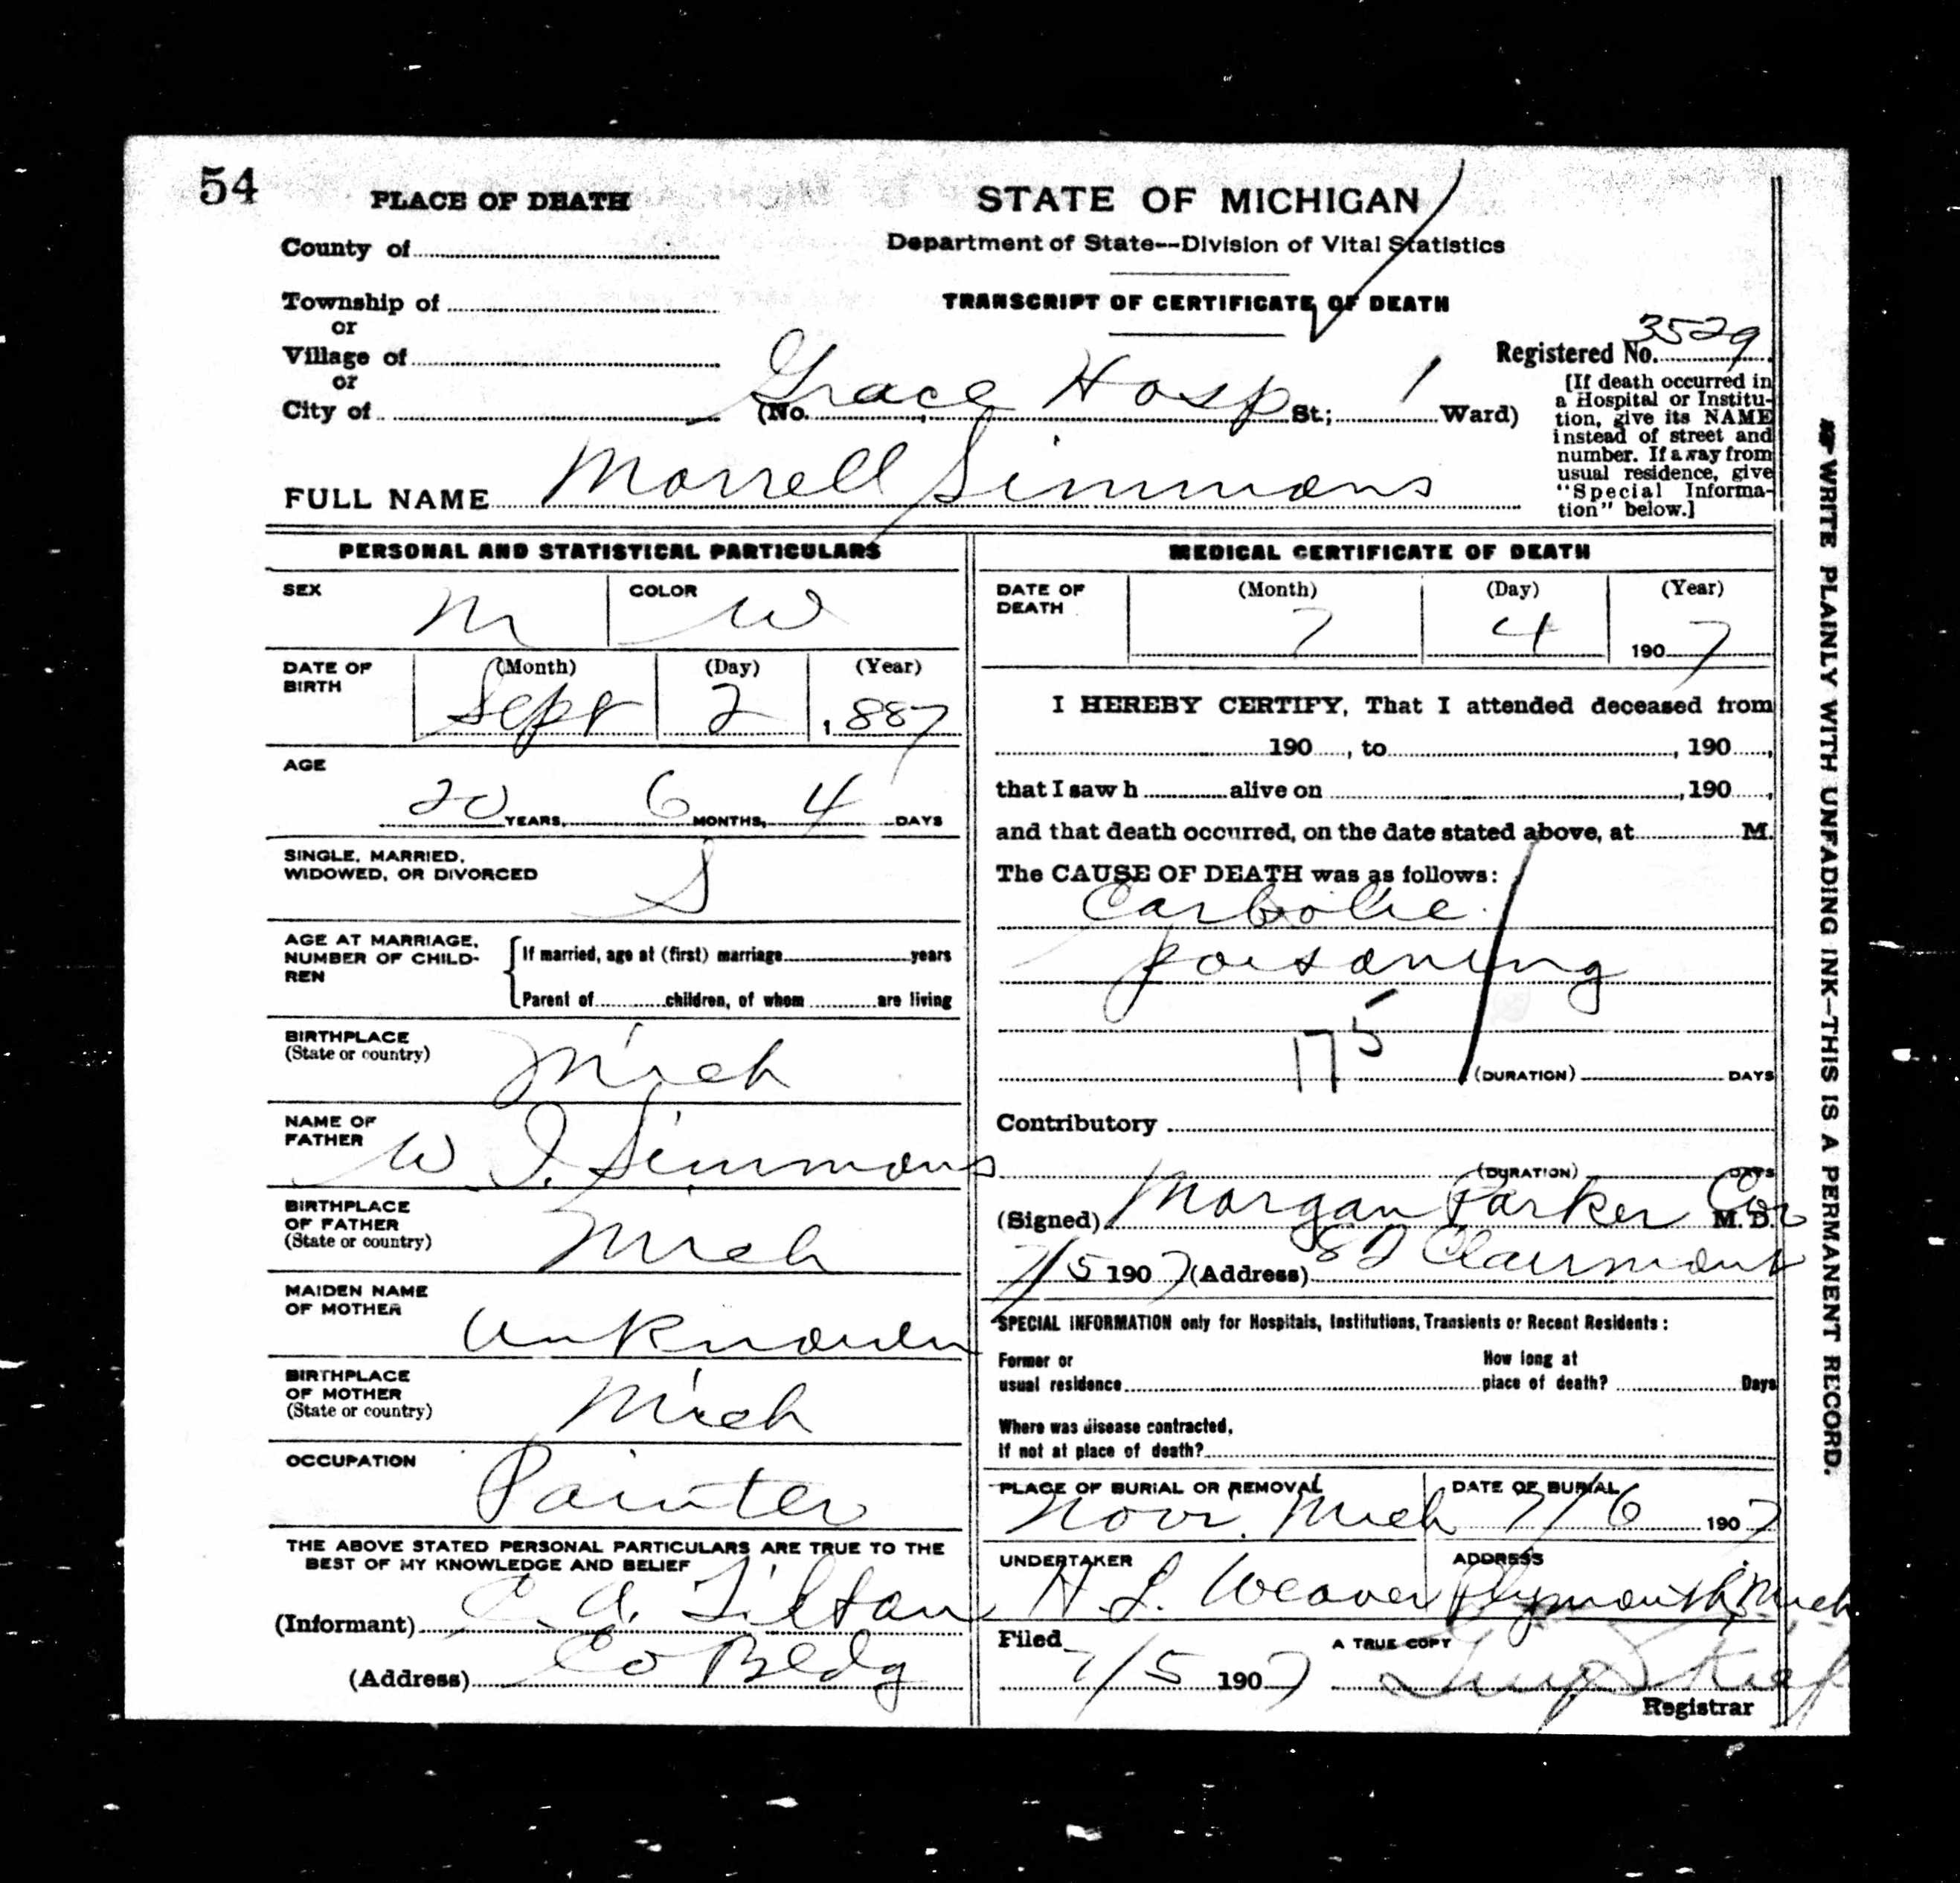 54
PLACE OF DEATH
STATE OF MICHIGAN
Department of State--Division of Vital Statistics
TRANSCRIPT OF CERTIFICATE OF DEATH
County of
Township of
or
Village of
or
City of
(No. Grace Hosp St.; 1 Ward)
Registered No. 3529
[If death occurred in
a Hospital or Institu-
tion, give its NAME
instead of street and
number. If away from
usual residence, give
"Special Informa-
tion" below.]
FULL NAME Morrell Simmons
PERSONAL AND STATISTICAL PARTICULARS
SEX M COLOR W
DATE OF BIRTH (Month) Sept (Day) 2 (Year) 1887
AGE 20 YEARS, 6 MONTHS, 4 DAYS
SINGLE, MARRIED,
WIDOWED, OR DIVORCED S
AGE AT MARRIAGE,
NUMBER OF CHILD-
REN
If married, age at (first) marriage years
Parent of children, of whom are living
BIRTHPLACE
(State or country) Mich
NAME OF
FATHER W I. Simmons
BIRTHPLACE
OF FATHER
(State or country) Mich
MAIDEN NAME
OF MOTHER Unknown
BIRTHPLACE
OF MOTHER
(State or country) Mich
OCCUPATION Painter
THE ABOVE STATED PERSONAL PARTICULARS ARE TRUE TO THE
BEST OF MY KNOWLEDGE AND BELIEF
(Informant) C. A. Tilton
(Address) Co Bldg
MEDICAL CERTIFICATE OF DEATH
DATE OF DEATH (Month) 7 (Day) 4 (Year) 1907
I HEREBY CERTIFY, That I attended deceased from
190 , to , 190 ,
that I saw h alive on , 190 ,
and that death occurred, on the date stated above, at M.
The CAUSE OF DEATH was as follows:
Carbolic
poisoning
175
(DURATION) DAYS
Contributory
(DURATION) DAYS
(Signed) Morgan Parker Cor M. D.
7/5 1907 (Address) 82 Clairmount
SPECIAL INFORMATION only for Hospitals, Institutions, Transients or Recent Residents:
Former or
usual residence
How long at
place of death? Days
Where was disease contracted,
If not at place of death?
PLACE OF BURIAL OR REMOVAL
Novi. Mich
DATE OF BURIAL
7/6 1907
UNDERTAKER
H. L. Weaver
ADDRESS
Plymouth, Mich
Filed
7/5 1907
A TRUE COPY
Registrar
WRITE PLAINLY WITH UNFADING INK—THIS IS A PERMANENT RECORD.